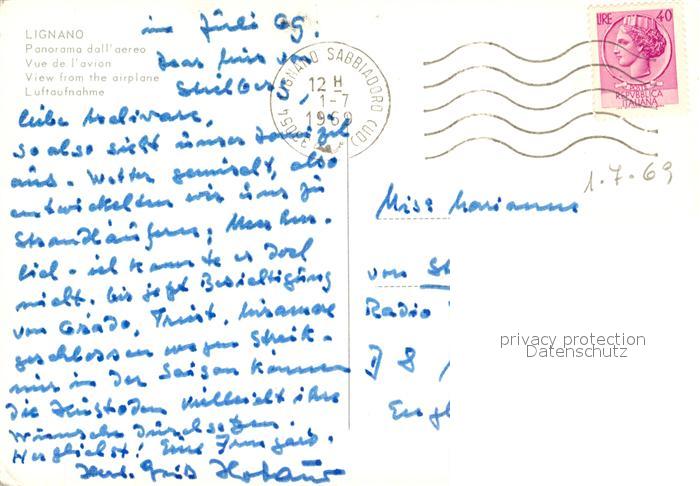 LIGNANO
Panorama dall'aereo
Vue de l'avion
View from the airplane
Luftaufnahme
im Juli 69.
33054 LIGNANO SABBIADORO (UD)
12 H
1-7
1969
LIRE 40
POSTE
REPVBBLICA
ITALIANA
1.7.69
liebe
so also sieht unser
aus. Wetter gemischt, also
entwickelten wir uns zu
Strandläufern,
lich - ich kannte es doch
nicht. bis jetzt Besichtigung
von Grado, Triest, Miramare
geschlossen wegen Streik -
nur in der Saison können
die Kustoden vielleicht ihre
Wünsche durchsetzen.
Herzlichst
Gruß
Miss Marianne
von St
Radio
8
Engl
privacy protection
Datenschutz